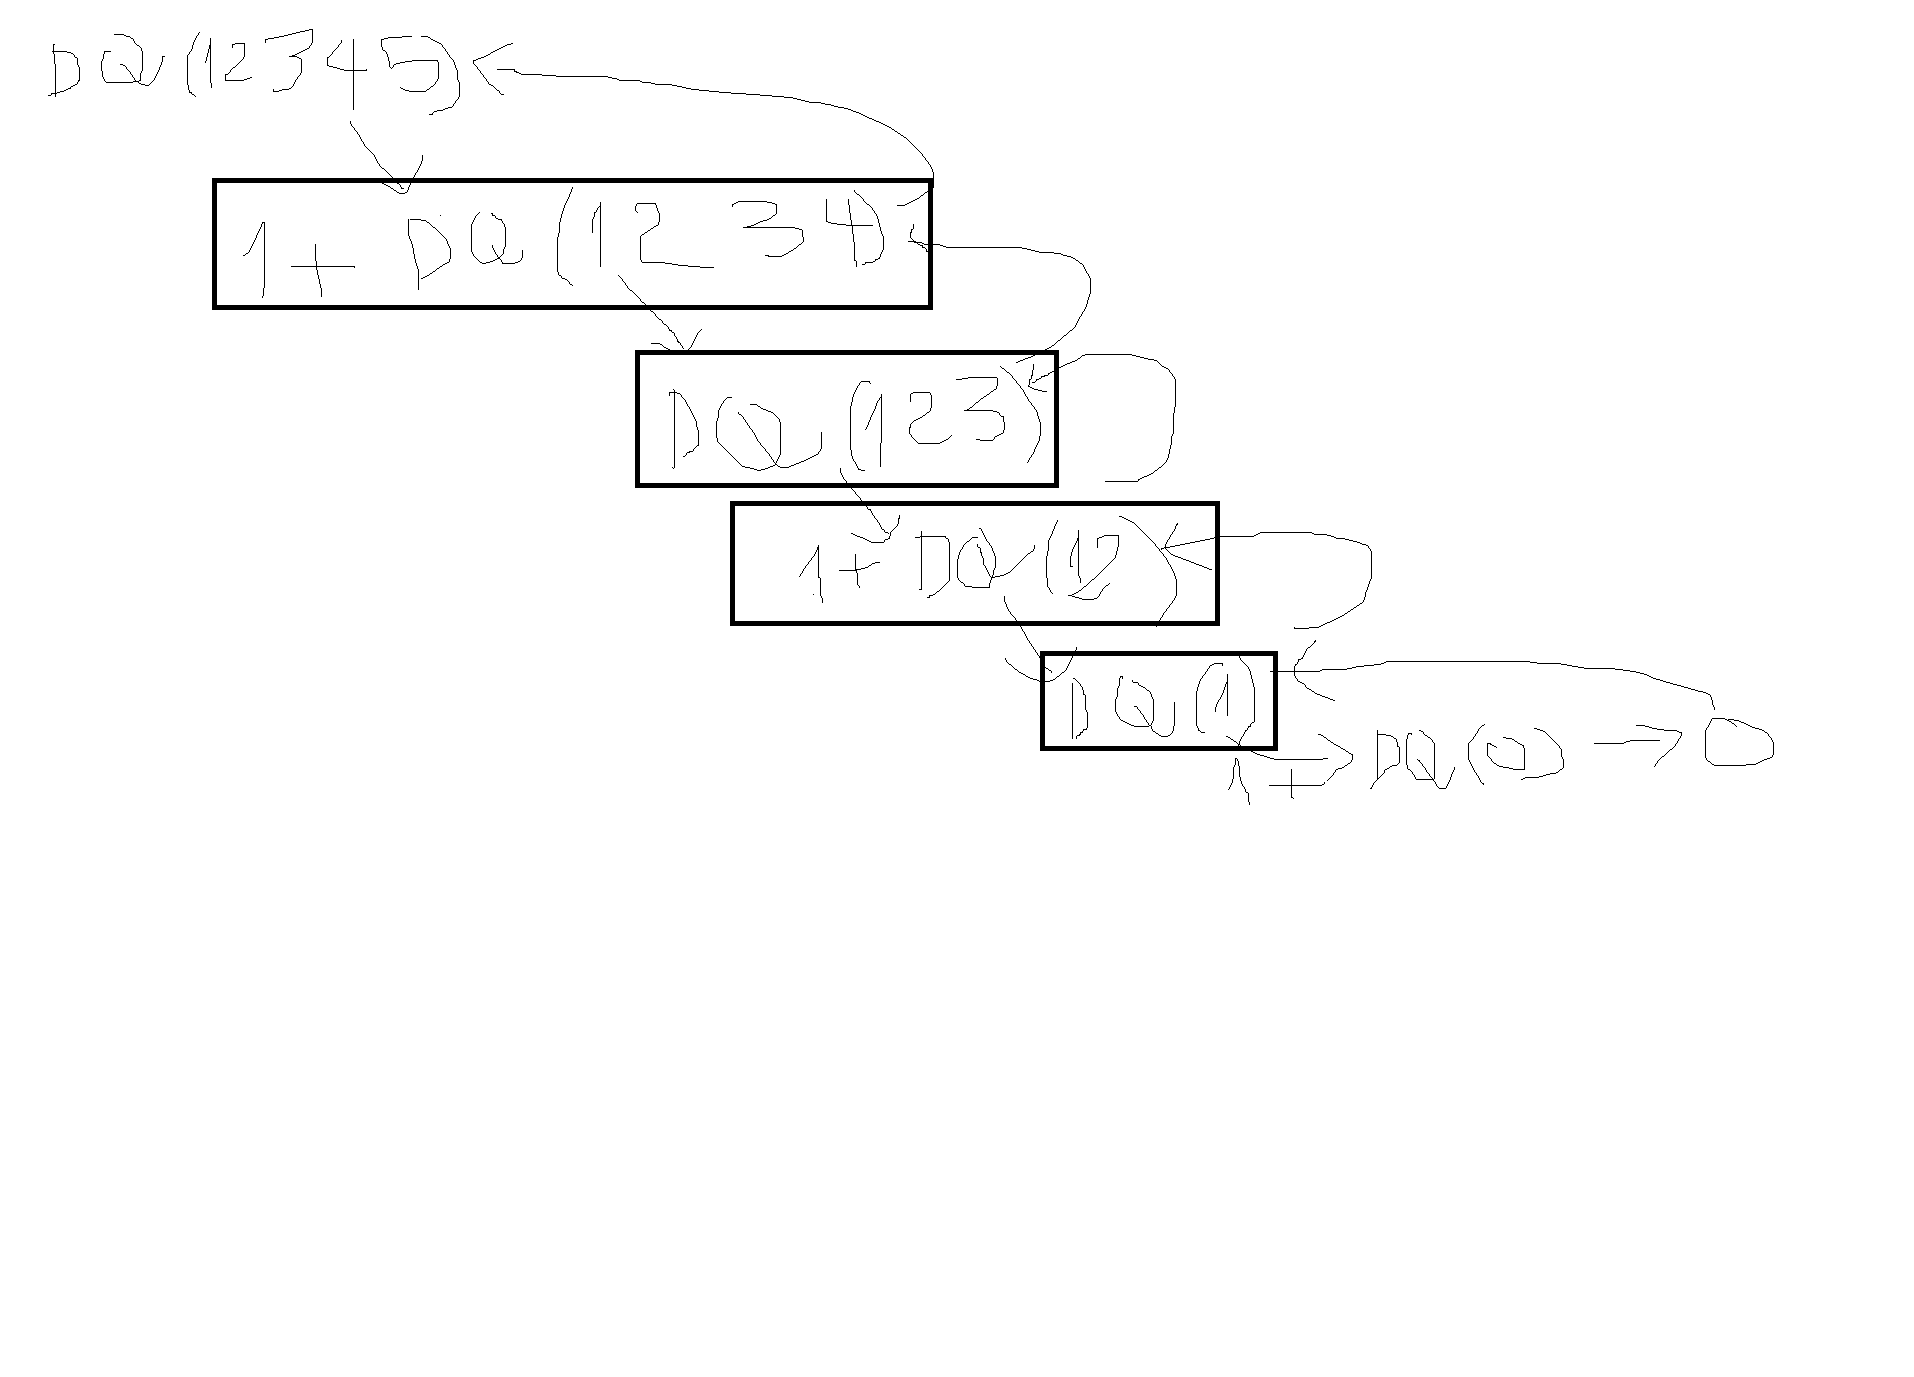 DQ(12345)
1+ DQ(1234)
DQ(123)
1+ DQ(12)
DQ(1)
1 + DQ(0) 0